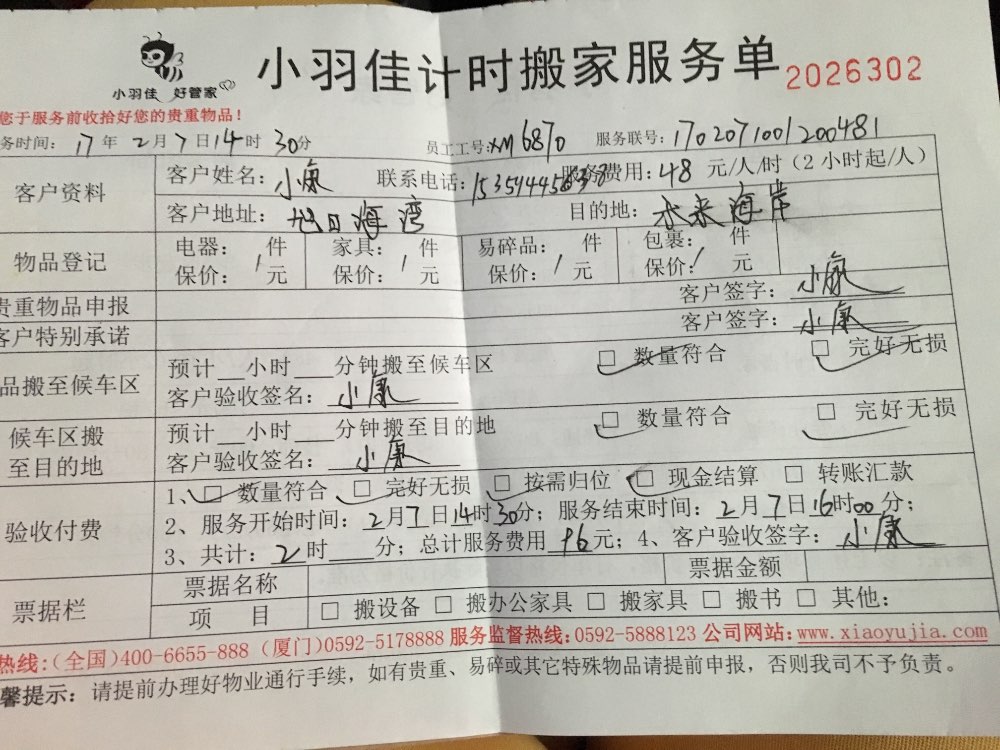 小羽佳计时搬家服务单 2026302
小羽佳 好管家
您于服务前收拾好您的贵重物品！
务时间：17年2月7日14时30分 员工工号：XM6870 服务联号：1702071001200481
客户资料 客户姓名：小康 联系电话： 服务费用：48元/人/时（2小时起/人）
客户地址：旭日海湾 目的地：未来海岸
物品登记 电器： 件 家具： 件 易碎品： 件 包裹： 件
保价：/元 保价：/元 保价：/元 保价：/元
贵重物品申报 客户签字：小康
客户特别承诺 客户签字：小康
品搬至候车区 预计__小时___分钟搬至候车区 □ 数量符合 □ 完好无损
客户验收签名：小康
候车区搬至目的地 预计__小时___分钟搬至目的地 □ 数量符合 □ 完好无损
客户验收签名：小康
验收付费 1、□ 数量符合 □ 完好无损 □ 按需归位 □ 现金结算 □ 转账汇款
2、服务开始时间：2月7日14时30分；服务结束时间：2月7日16时00分；
3、共计：2时____分；总计服务费用96元；4、客户验收签字：小康
票据栏 票据名称 票据金额
项 目 □ 搬设备 □ 搬办公家具 □ 搬家具 □ 搬书 □ 其他：
热线:(全国)400-6655-888 (厦门)0592-5178888 服务监督热线:0592-5888123 公司网站:www.xiaoyujia.com
馨提示：请提前办理好物业通行手续，如有贵重、易碎或其它特殊物品请提前申报，否则我司不予负责。